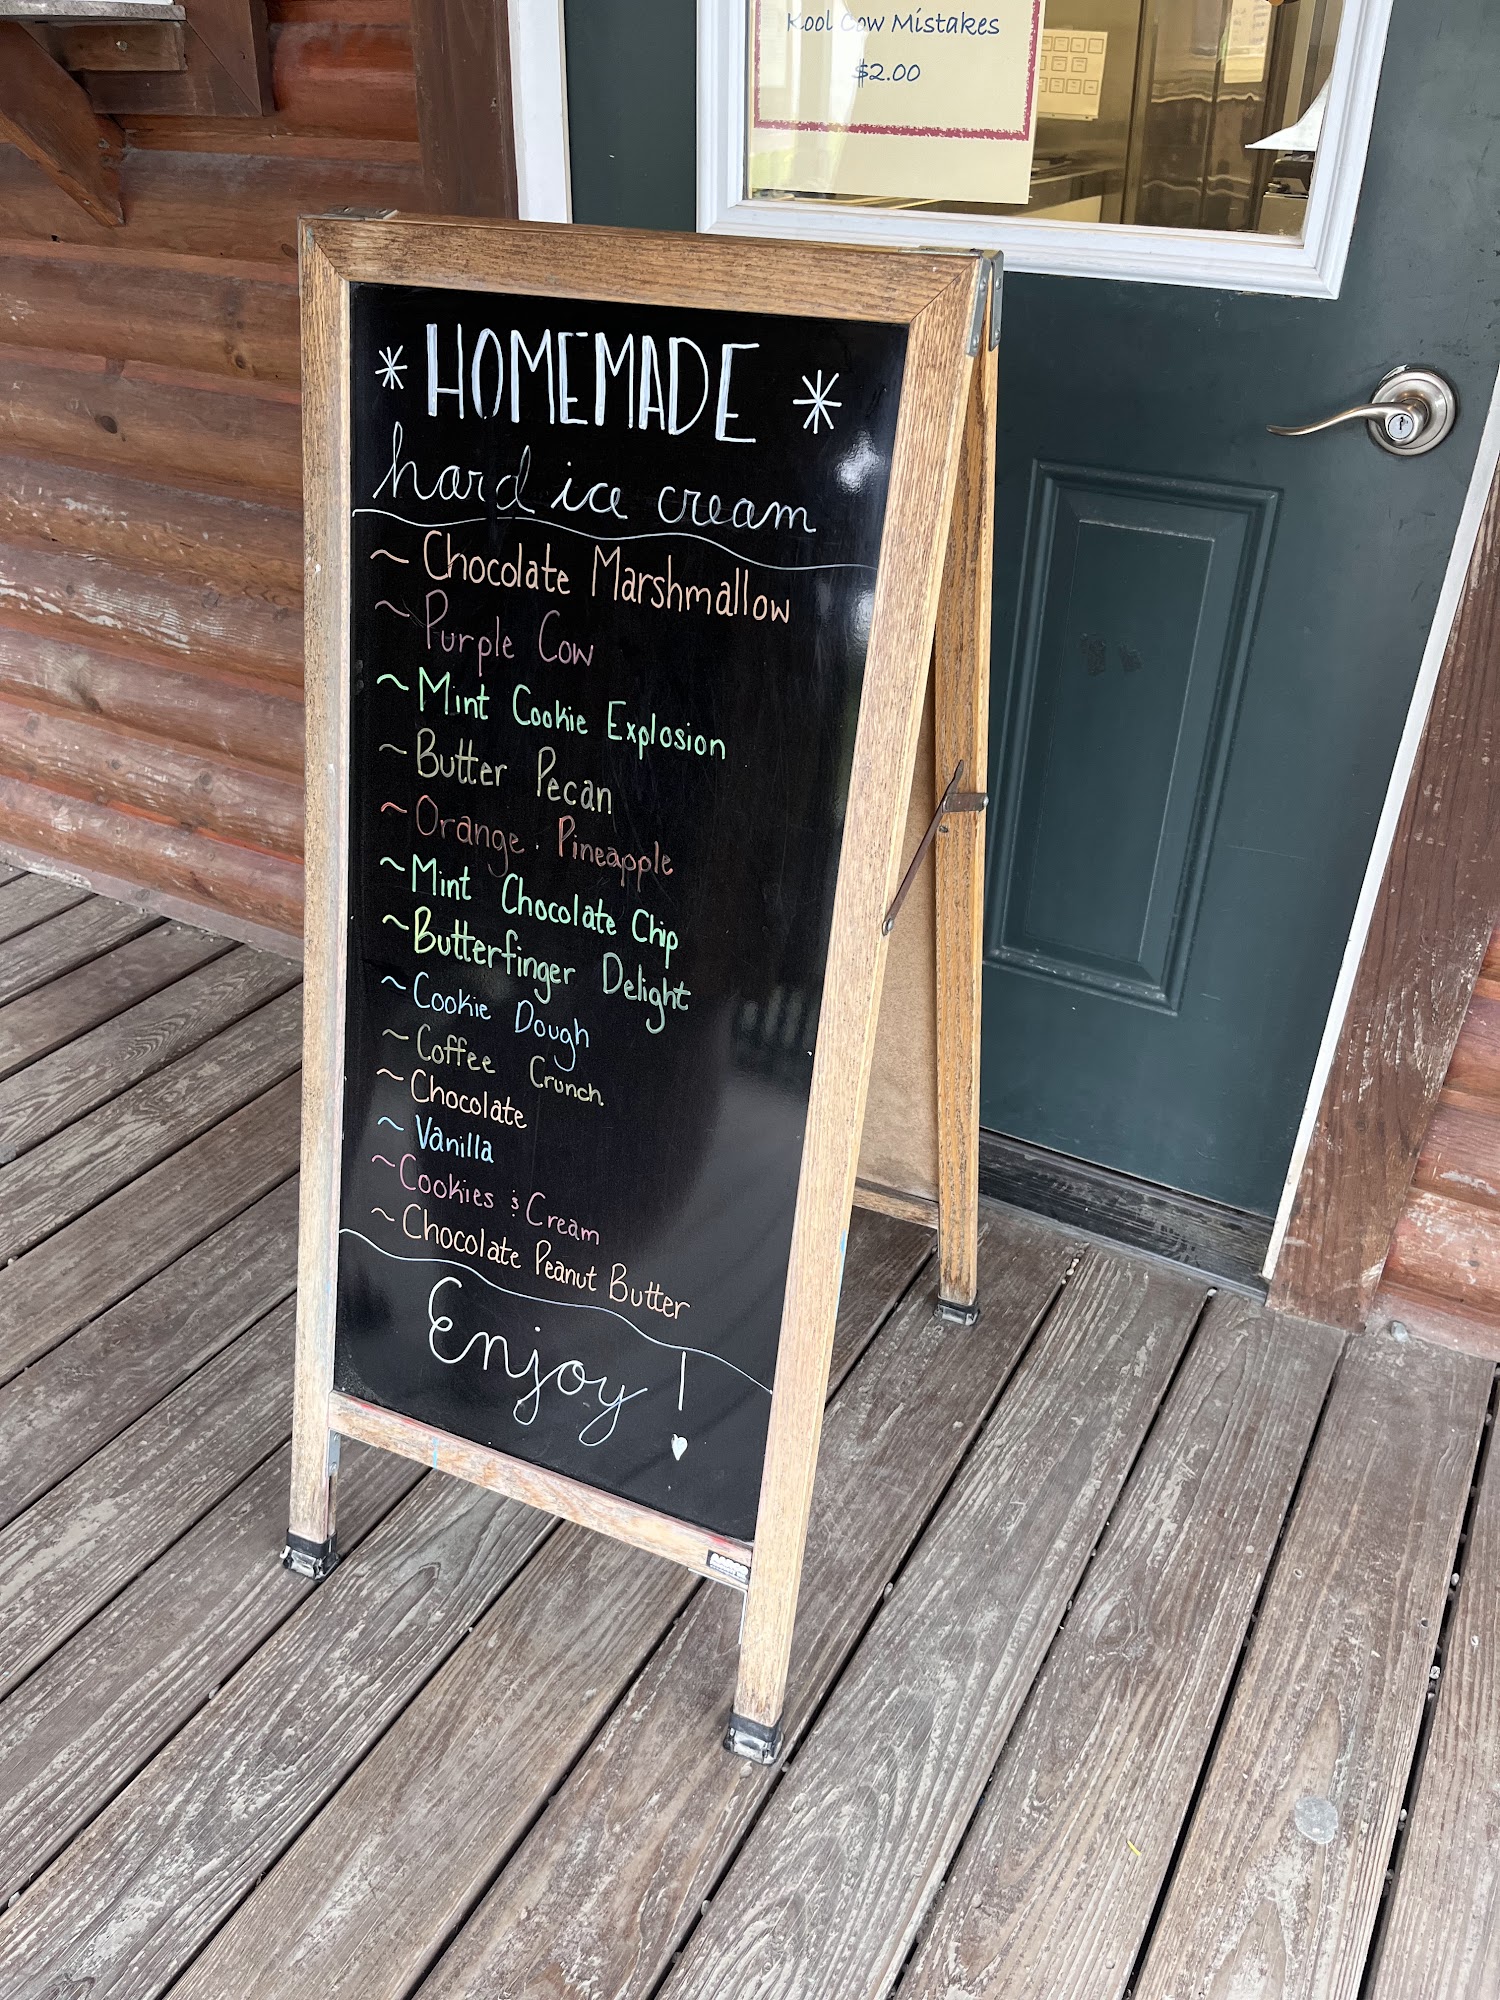 Kool Cow Mistakes
$2.00
* HOMEMADE *
hard ice cream
~ Chocolate Marshmallow
~ Purple Cow
~ Mint Cookie Explosion
~ Butter Pecan
~ Orange · Pineapple
~ Mint Chocolate Chip
~ Butterfinger Delight
~ Cookie Dough
~ Coffee Crunch
~ Chocolate
~ Vanilla
~ Cookies & Cream
~ Chocolate Peanut Butter
Enjoy!